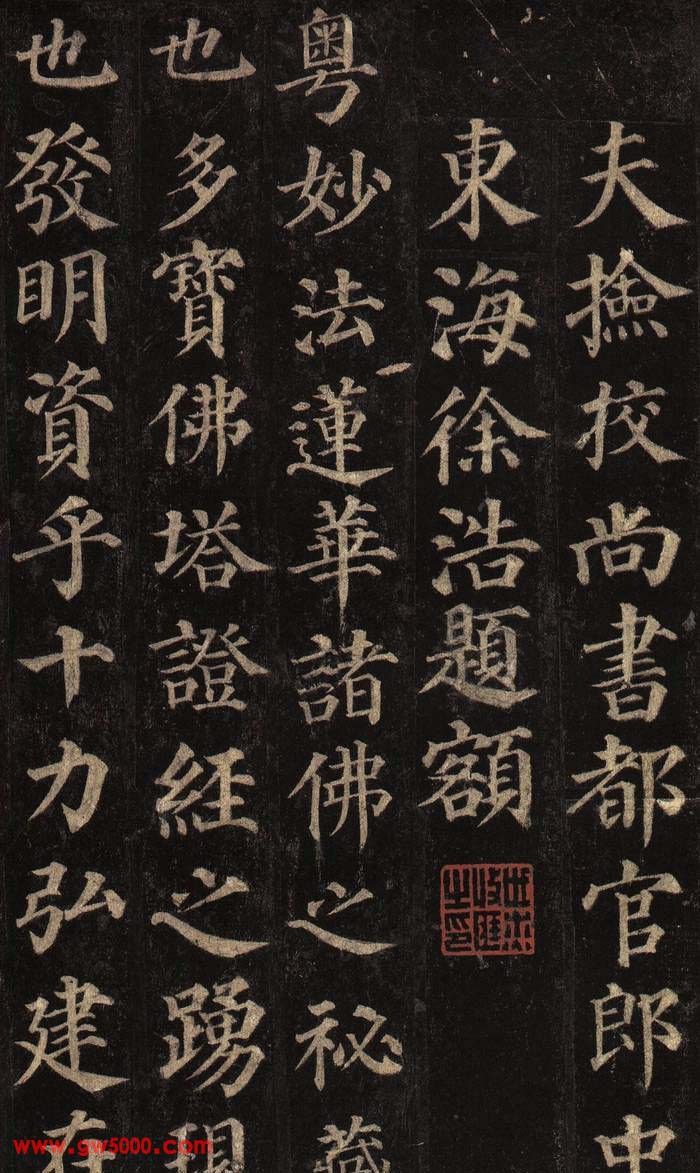 夫撿挍尚書都官郎中
東海徐浩題額
粵妙法蓮華諸佛之祕藏
也多寶佛塔證經之踴現
也發明資乎十力弘建在
www.gw5000.com